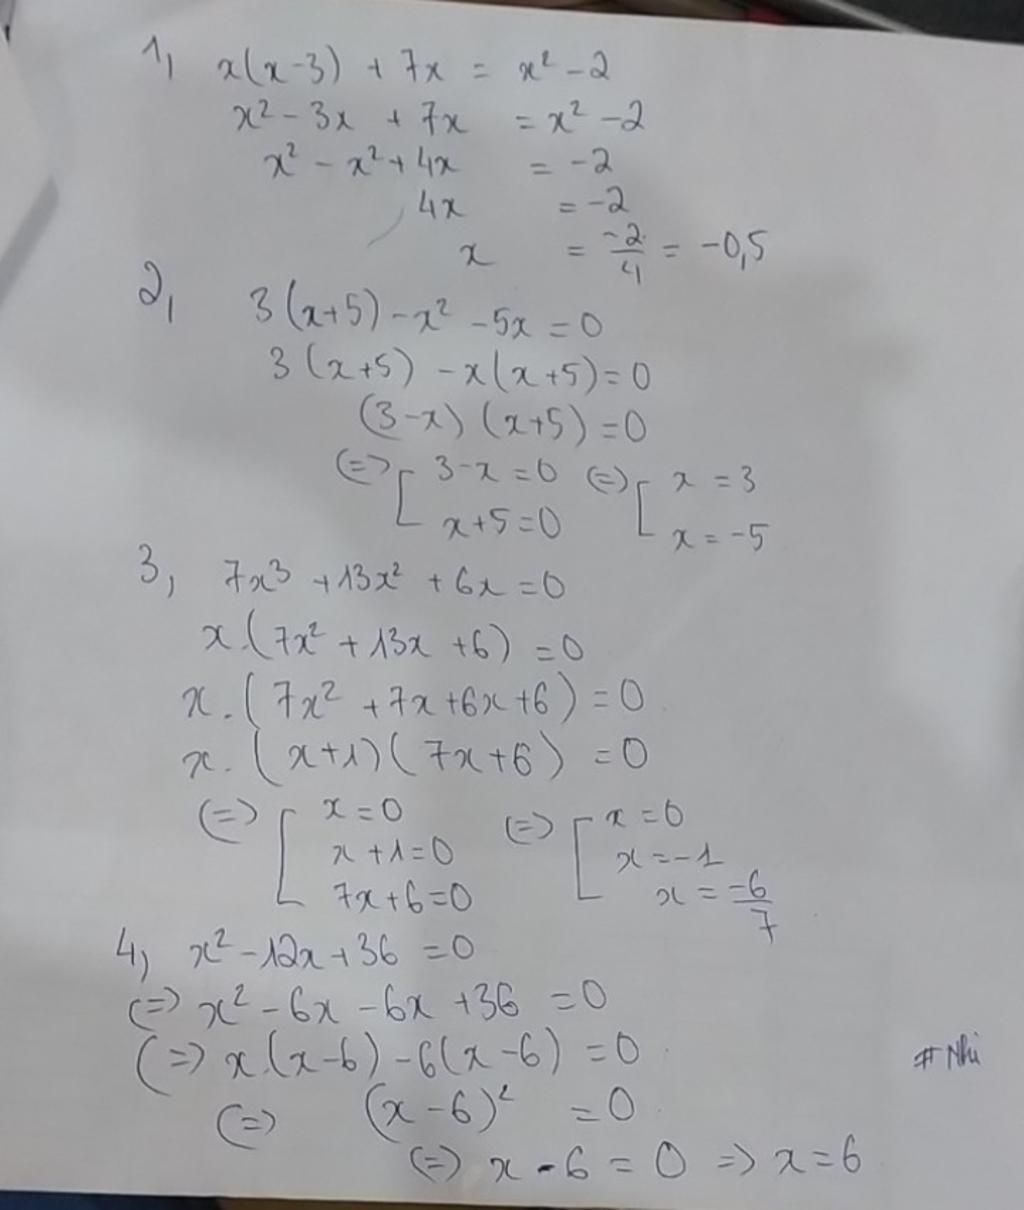 1, x(x-3) + 7x = x² - 2
x² - 3x + 7x = x² - 2
x² - x² + 4x = -2
4x = -2
x = -2/4 = -0,5
2, 3(x+5) - x² - 5x = 0
3(x+5) - x(x+5) = 0
(3-x)(x+5) = 0
(=> [ 3-x = 0 (=) [ x = 3
x+5 = 0 x = -5
3, 7x³ + 13x² + 6x = 0
x.(7x² + 13x + 6) = 0
x.(7x² + 7x + 6x + 6) = 0
x.(x+1)(7x+6) = 0
(=> [ x = 0 (=> [ x = 0
x + 1 = 0 x = -1
7x + 6 = 0 x = -6/7
4, x² - 12x + 36 = 0
(=> x² - 6x - 6x + 36 = 0
(=> x.(x-6) - 6(x-6) = 0
# Nhi
(=> (x-6)² = 0
(=> x - 6 = 0 => x = 6